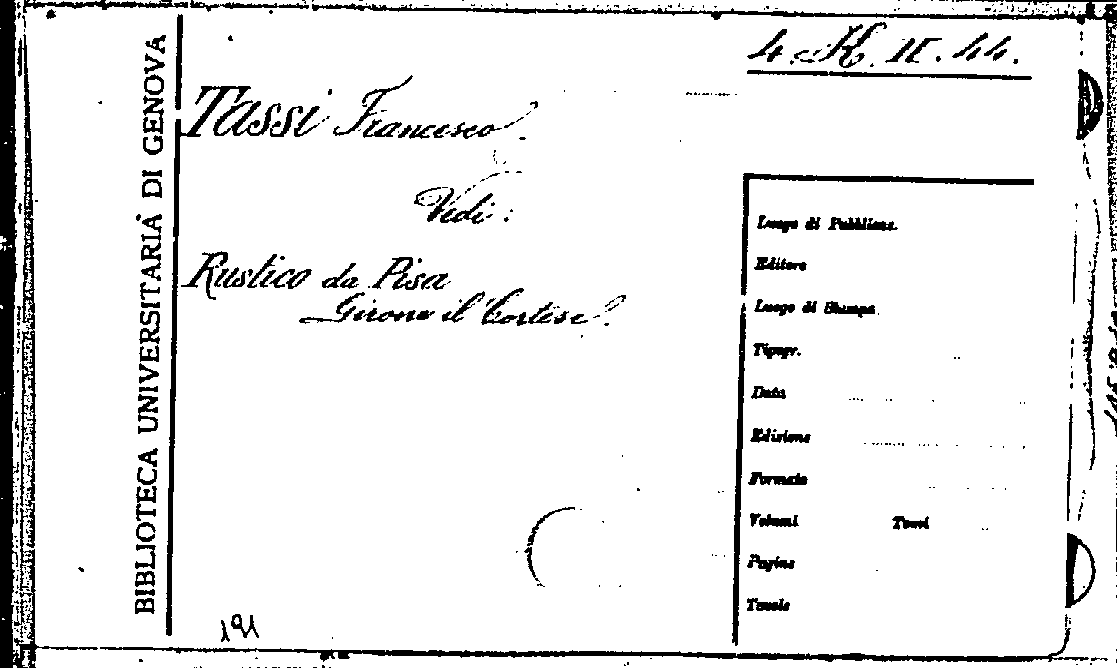 BIBLIOTECA UNIVERSITARIA DI GENOVA
4. K. II. 44.
Tassi Francesco.
Vedi:
Rustico da Pisa
Girone il Cortese.
Luogo di Pubblicaz.
Editore
Luogo di Stampa
Tipogr.
Data
Edizione
Formato
Volumi Tomi
Pagine
Tavole
191